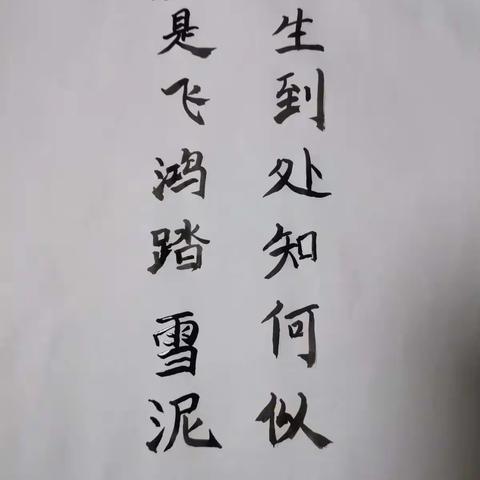 生到处知何似
是飞鸿踏雪泥